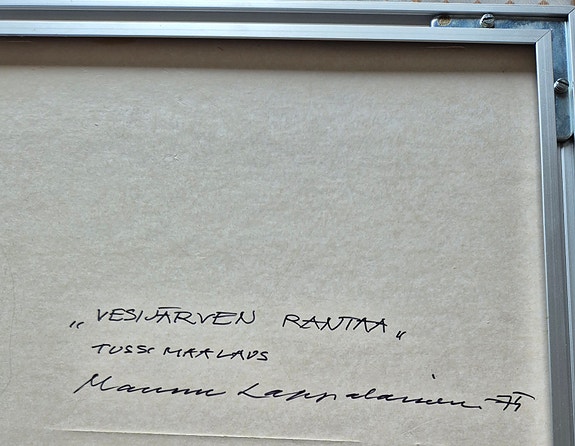 „VESIJÄRVEN RANTAA„
TUSSIMAALAUS
Maunu Lappalainen